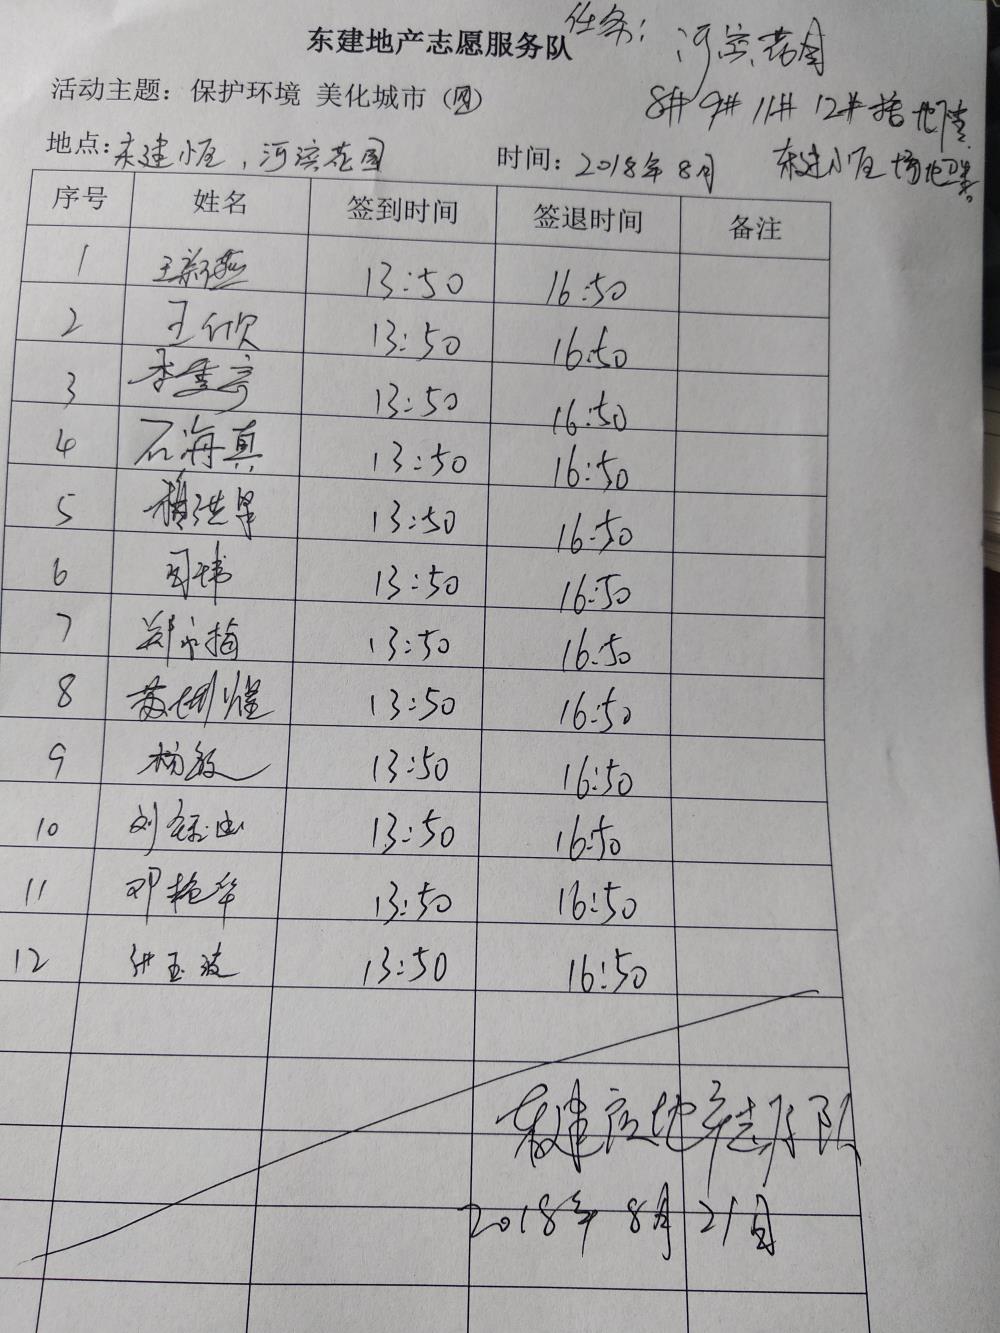 东建地产志愿服务队
任务：河滨花园
8# 9# 11# 12#
活动主题：保护环境 美化城市（四）
地点：东建小区、河滨花园
时间：2018年8月
东建小区场地卫生。
序号 姓名 签到时间 签退时间 备注
1 王新燕 13:50 16:50
2 王欣 13:50 16:50
3 李 13:50 16:50
4 石海真 13:50 16:50
5 13:50 16:50
6 司玮 13:50 16:50
7 郑永梅 13:50 16:50
8 13:50 16:50
9 杨毅 13:50 16:50
10 刘 13:50 16:50
11 邓艳华 13:50 16:50
12 张玉波 13:50 16:50
东建房地产志愿队
2018年8月21日